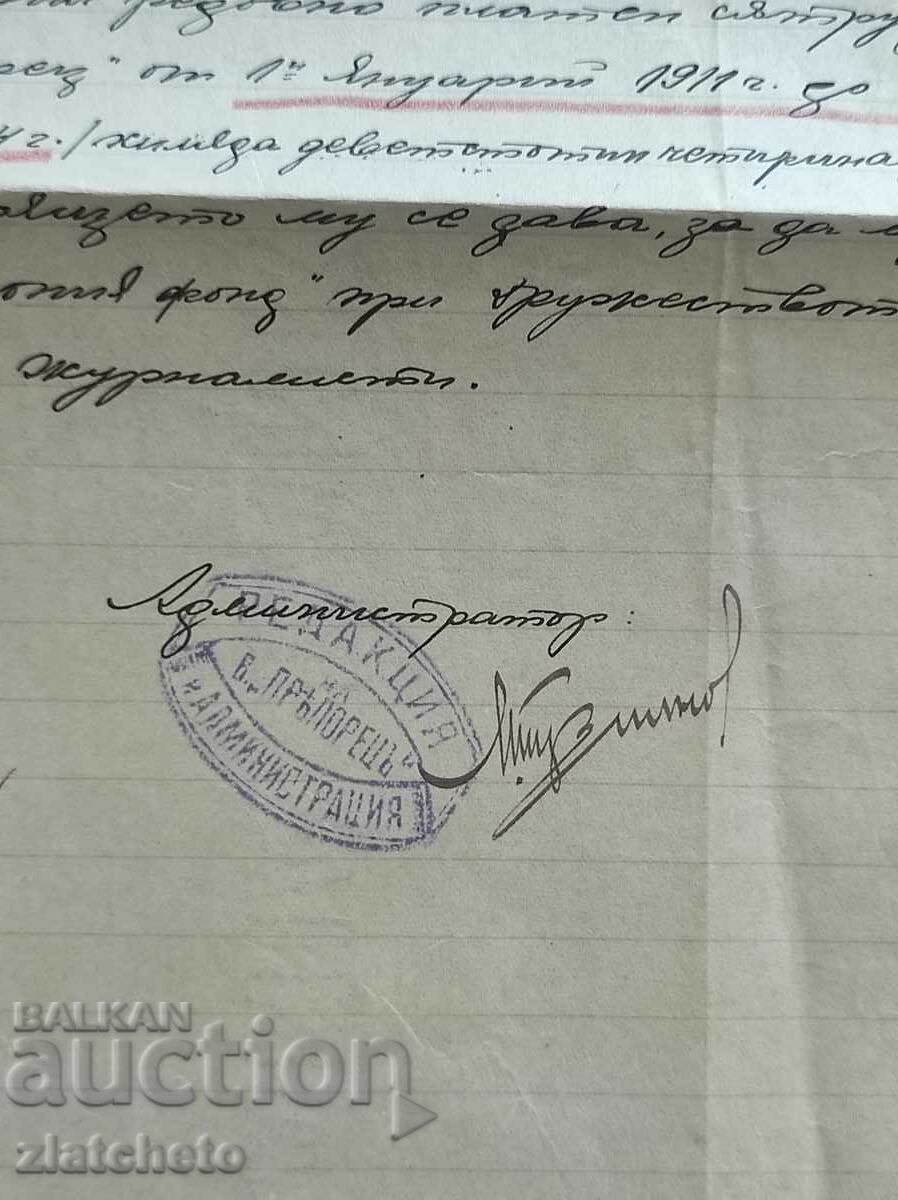 редовно платен сътру
рец" от 1ий Януарий 1911 г. до
4 г. / хиляда деветстотин четирина
ящето му се дава, за да
фонд" при дружеството
журналисти.
Администратор:
РЕДАКЦИЯ
НА
В. „ПРѢПОРЕЦЪ“
И АДМИНИСТРАЦИЯ
BALKAN
auction
zlatcheto